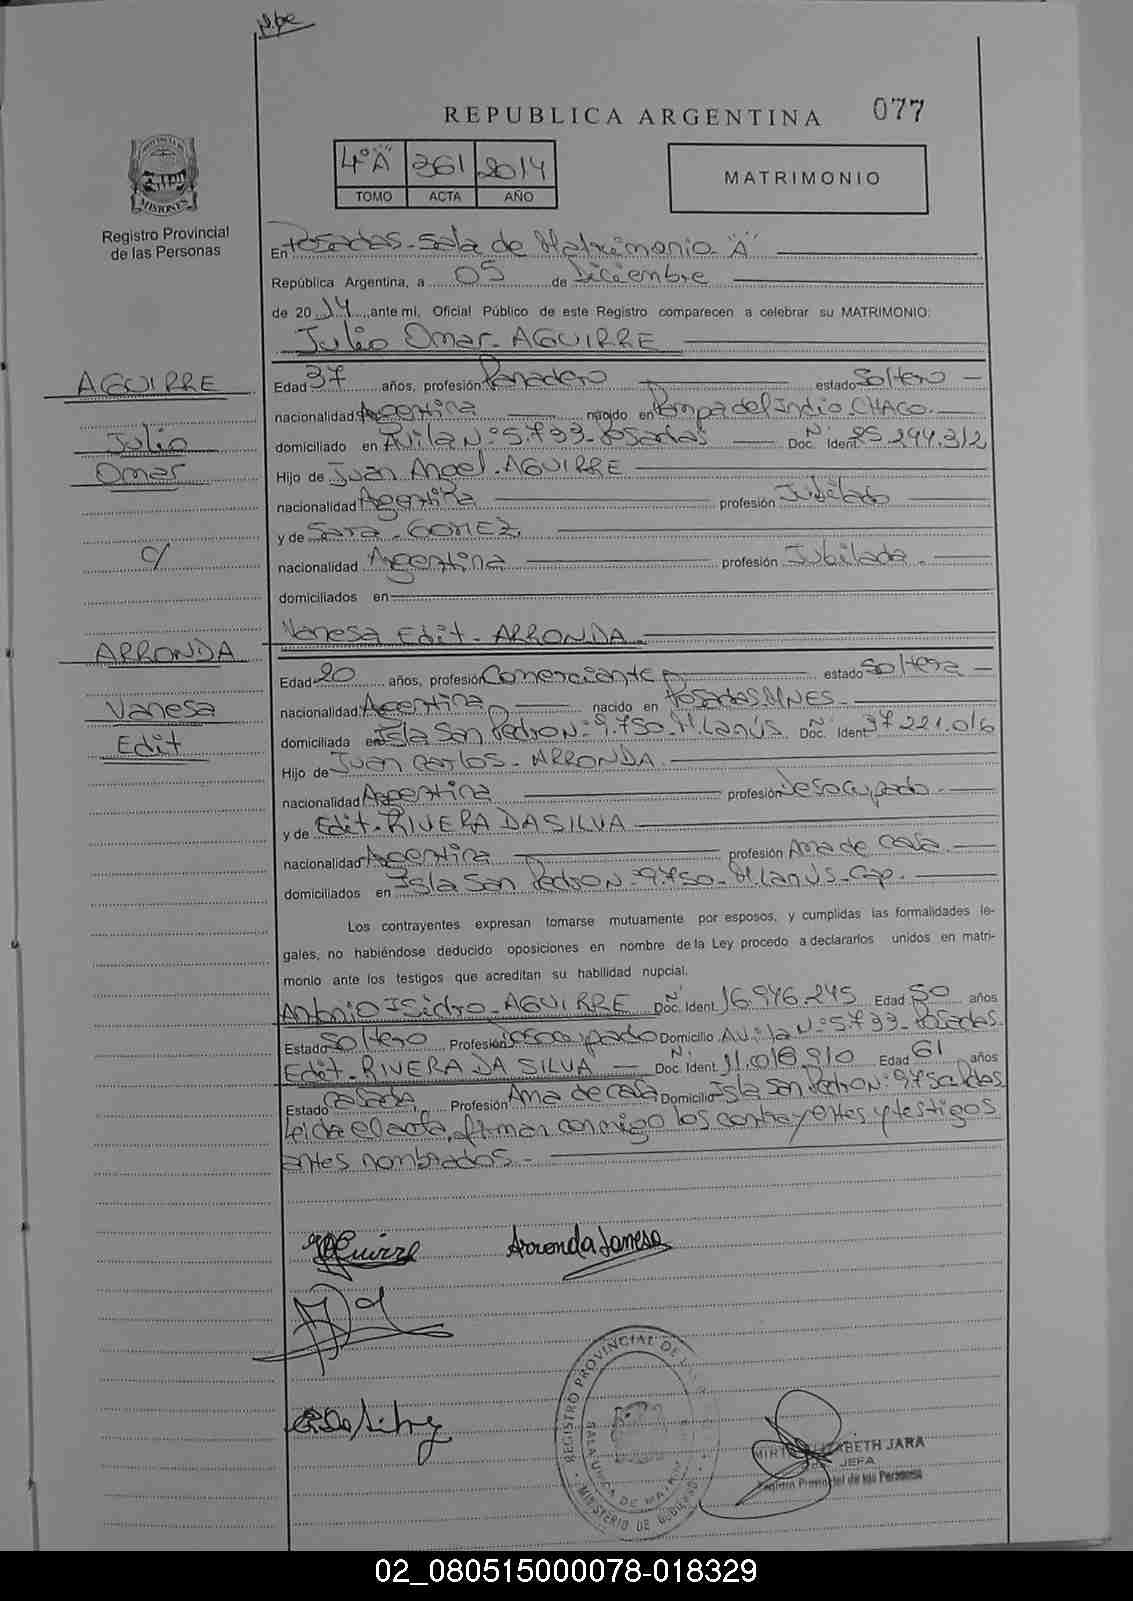 REPUBLICA ARGENTINA 077
4º"A" 361 2014
TOMO ACTA AÑO
MATRIMONIO
PROVINCIA DE
MISIONES
Registro Provincial
de las Personas
En Posadas - Sala de Matrimonio "A"
República Argentina, a 05 de Diciembre
de 2014, ante mi, Oficial Público de este Registro comparecen a celebrar su MATRIMONIO:
Julio Omar - AGUIRRE
AGUIRRE
Julio
Omar
c/
ARRONDA
Vanesa
Edit
Edad 37 años, profesión Panadero estado Soltero
nacionalidad Argentina nacido en Pampa del Indio, CHACO.
domiciliado en Avila Nº 5.733 - Posadas Doc. Nº Ident 25.294.312
Hijo de Juan Angel - AGUIRRE
nacionalidad Argentina profesión Jubilado
y de Sara - GOMEZ
nacionalidad Argentina profesión Jubilada.
domiciliados en
Vanesa Edit - ARRONDA
Edad 20 años, profesión Comerciante estado Soltera
nacionalidad Argentina nacido en Posadas, MNES.
domiciliada en Isla San Pedro Nº 9.750 - M. Lanús. Doc. Nº Ident 37.221.016
Hijo de Juan Carlos - ARRONDA.
nacionalidad Argentina profesión Desocupado.
y de Edit - RIVERA DA SILVA
nacionalidad Argentina profesión Ama de casa.
domiciliados en Isla San Pedro Nº 9.750 - M. Lanús - Cap.
Los contrayentes expresan tomarse mutuamente por esposos, y cumplidas las formalidades le-
gales, no habiéndose deducido oposiciones en nombre de la Ley procedo a declararlos unidos en matri-
monio ante los testigos que acreditan su habilidad nupcial.
Antonio Isidro - AGUIRRE Doc. Nº Ident 16.946.245 Edad 50 años
Estado Soltero Profesión Desocupado Domicilio Avila Nº 5.733 - Posadas.
Edit - RIVERA DA SILVA Doc. Nº Ident 11.018.910 Edad 61 años
Estado casada, Profesión Ama de casa Domicilio Isla San Pedro Nº 9.750, Pdas
Leida el acta, firman conmigo los contrayentes y testigos
antes nombrados.
Arronda Vanesa
REGISTRO PROVINCIAL DE
MINISTERIO DE GOBIERNO
ELIZABETH JARA
JEFA
Registro Provincial de las Personas
02_080515000078-018329